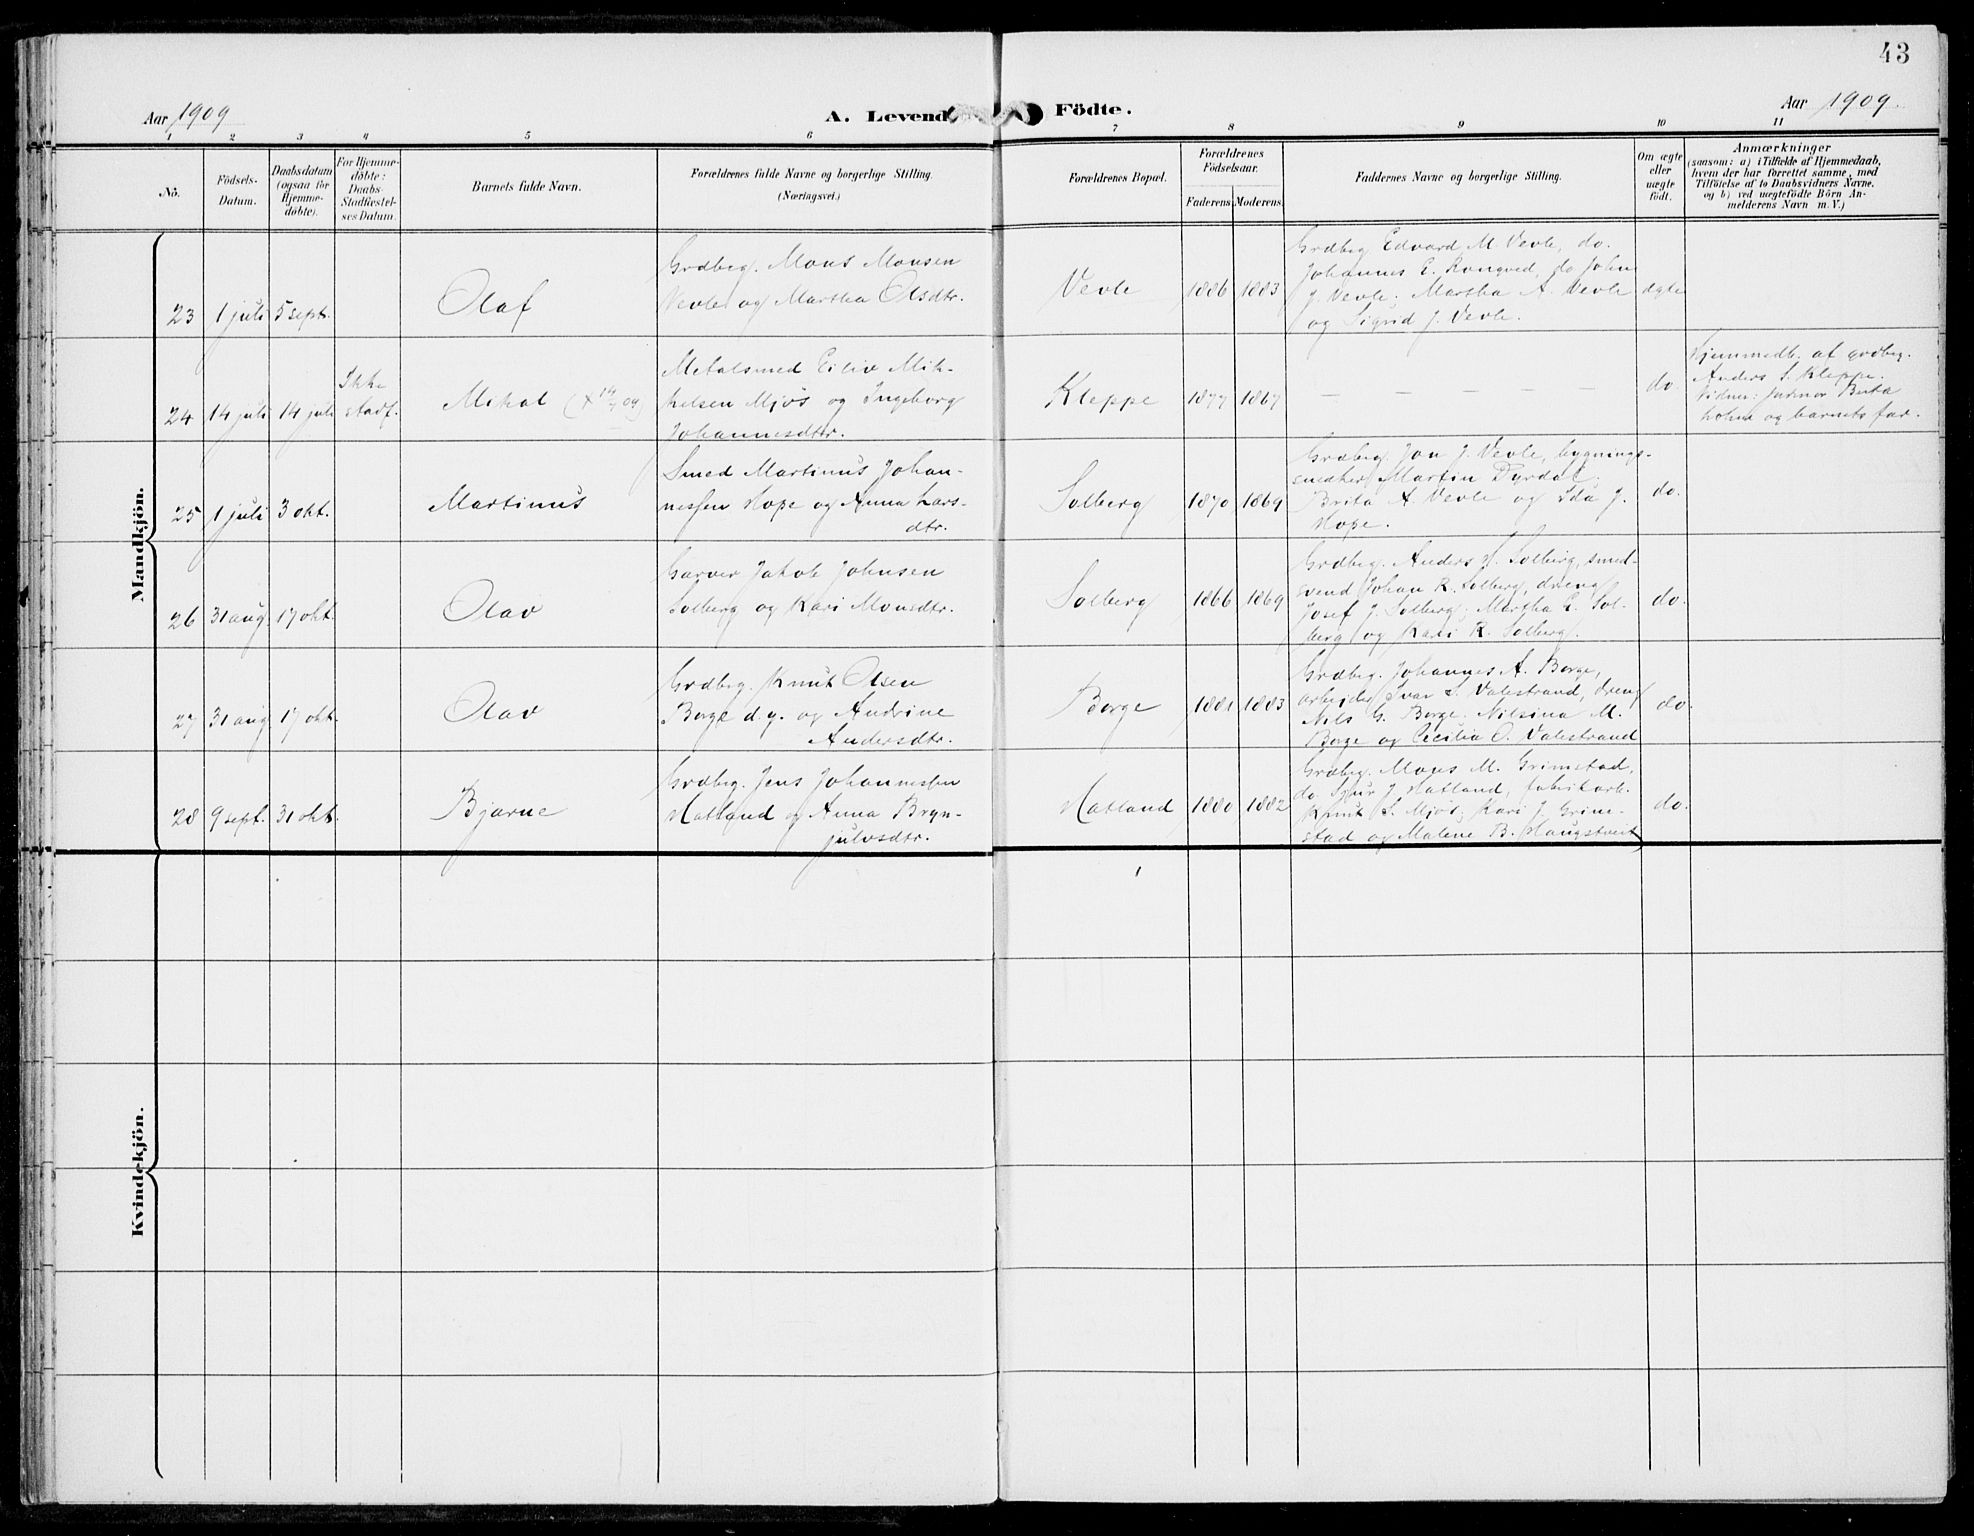 43
Aar 1909
A. Levende
Födte.
Aar 1909.
1 2 3 4 5 6 7 8 9 10 11
No.
Födsels-
Datum.
Daabsdatum
(ogsaa for
Hjemme-
døbte).
For Hjemme-
døbte:
Daabs-
Stadfæstel-
ses Datum.
Barnets fulde Navn.
Forældrenes fulde Navne og borgerlige Stilling.
(Næringsvei.)
Forældrenes Bopæl.
Forældrenes
Födselsaar.
Faderens Moderens
Faddernes Navne og borgerlige Stilling.
Om ægte
eller
uægte
født.
Anmærkninger
(saasom: a) i Tilfælde af Hjemmedaab,
hvem der har forrettet samme, med
Tilföielse af to Daabsvidners Navne,
og b) ved uægtefödte Börn An-
melderens Navn m. V.)
Mandkjön.
23 1 juli 5 sept. Olaf
Grdbrg. Mons Monsen
Vevle og Martha Olsdtr.
Vevle 1886 1883
Grdbrg Edvard M. Vevle, do.
Johannes E. Rongved, do John
J. Vevle. Martha A. Vevle
og Sigrid J. Vevle.
ægte
24 14 juli 14 juli
Ikke
stadf.
Mikal (+ 14/7 09)
Metalsmed Eiliv Mik-
kelsen Mjøs og Ingeborg
Johannesdtr.
Kleppe 1877 1867 — — — — — do
Hjemmedb. af grdbrg.
Anders S. Kleppe.
Vidner: jormor Brita
Holm og barnets far.
25 1 juli 3 okt. Martinus
Smed Martinus Johan-
nessen Hope og Anna Lars-
dtr.
Solberg 1870 1869
Grdbrg. Jon J. Vevle, bygnings-
snedker Martin Dyrdal;
Brita A. Vevle og Ida J.
Hope.
do.
26 31 aug. 17 okt. Olav
Garver Jakob Johnsen
Solberg og Kari Monsdtr.
Solberg 1866 1869
Grdbrg. Anders J. Solberg, smed-
svend Johan R. Solberg, dreng
Josef J. Solberg; Martha E. Sol-
berg og Kari R. Solberg.
do.
27 31 aug 17 okt. Olav
Grdbrg. Knut Olsen
Borge d.y. og Andrine
Andersdtr.
Borge 1881 1883
Grdbrg. Johannes A. Borge,
arbeider Ivar S. Valestrand, dreng
Nils G. Borge. Nilsina M.
Borge og Cecilia O. Valestrand
do.
28 9 sept. 31 okt. Bjarne
Grdbrg. Jens Johannessen
Hatland og Anna Bryn-
julvsdtr.
Hatland 1880 1882
Grdbrg. Mons M. Grimstad,
do. Sjur J. Hatland, fabrikarb.
Knut S. Mjøs; Kari J. Grim-
stad og Malene B. Haugstveit
do.
Kvindekjön.